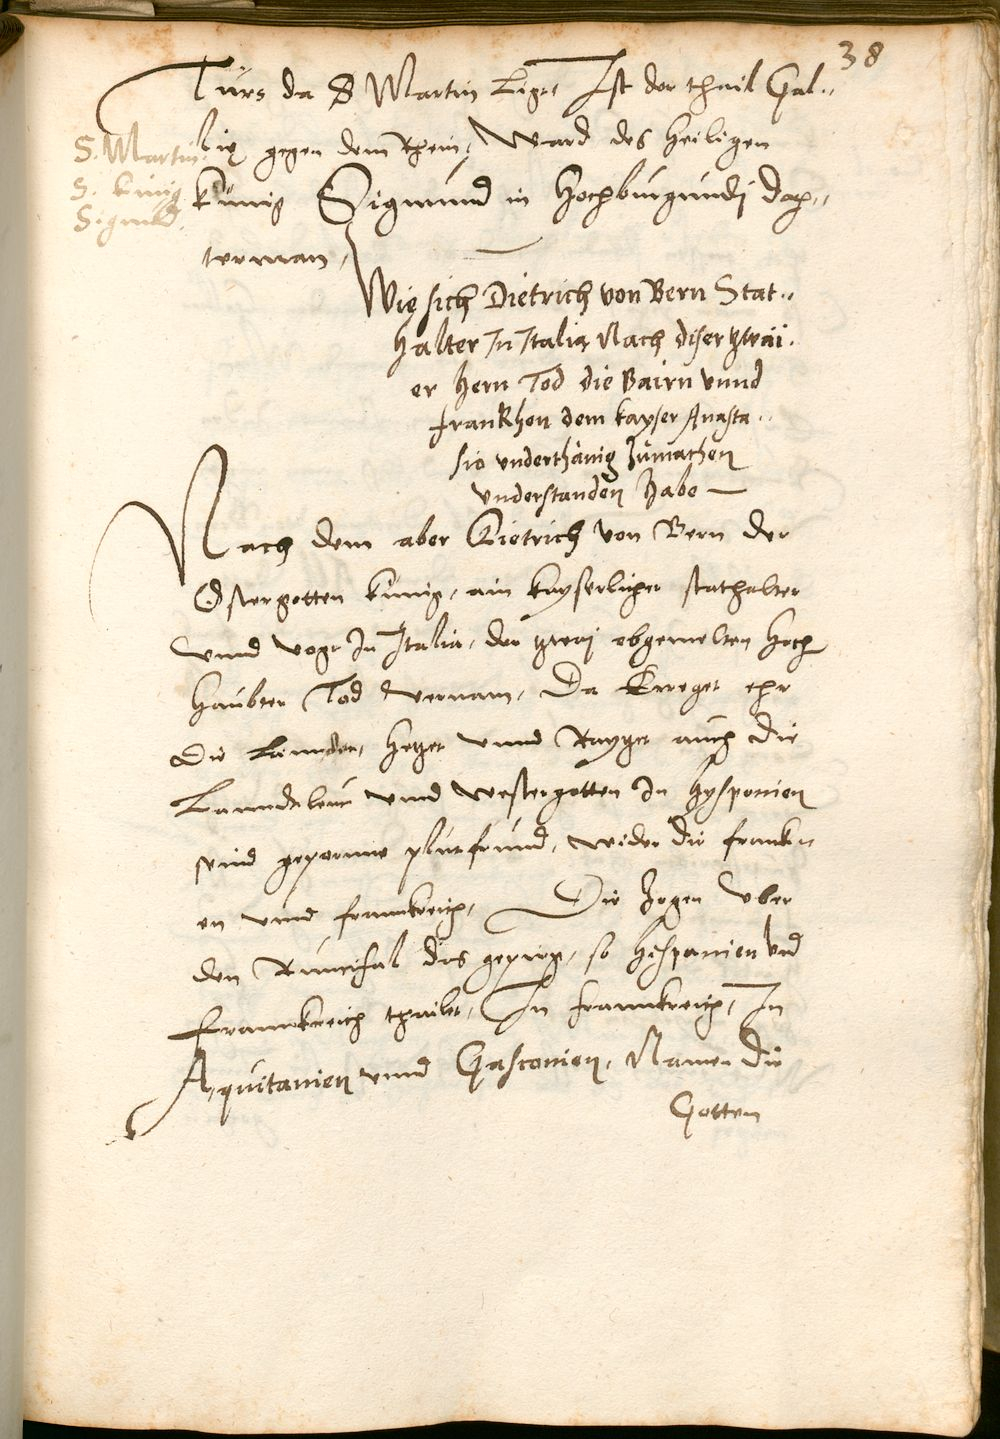 38
Türs da S Martin Ligt Ist der thail Gal„
lię gegen dem Rhein, Ward des heiligen
S. Martin.
S. künig
Sigmūd.
künig Sigmund in Hochburgundj doch„
terman,
Wię sich Dietrich von Bern Stat„
halter In Italia Nach diser tzwäi„
er Hern Tod die Bairn vnnd
frankhen dem kayser Anasta„
sio vnderthänig zůmachen
vnderstanden habe —
Nach dem aber Dietrich von Bern der
Ostergotten künig, ain kayserlicher stathalter
vnnd vogt In Italia, der tzwaj obgemelten Hoch
Haubter Tod vernam, Da Erreget ehr
Die Lennder, Hetzet vnnd Raytzet auch die
Lanndsleut vnnd westergotten In Hysponien
seind geporne pluetfreund, wider die frankn
en vnnd frannkreich, Die Zogen vber
den Runcifal das gepirg, so Hispanien vnd
frannkreich thailet, In frannkreich, In
Aquitanien vnnd Gasconien, Namen die
Gotten